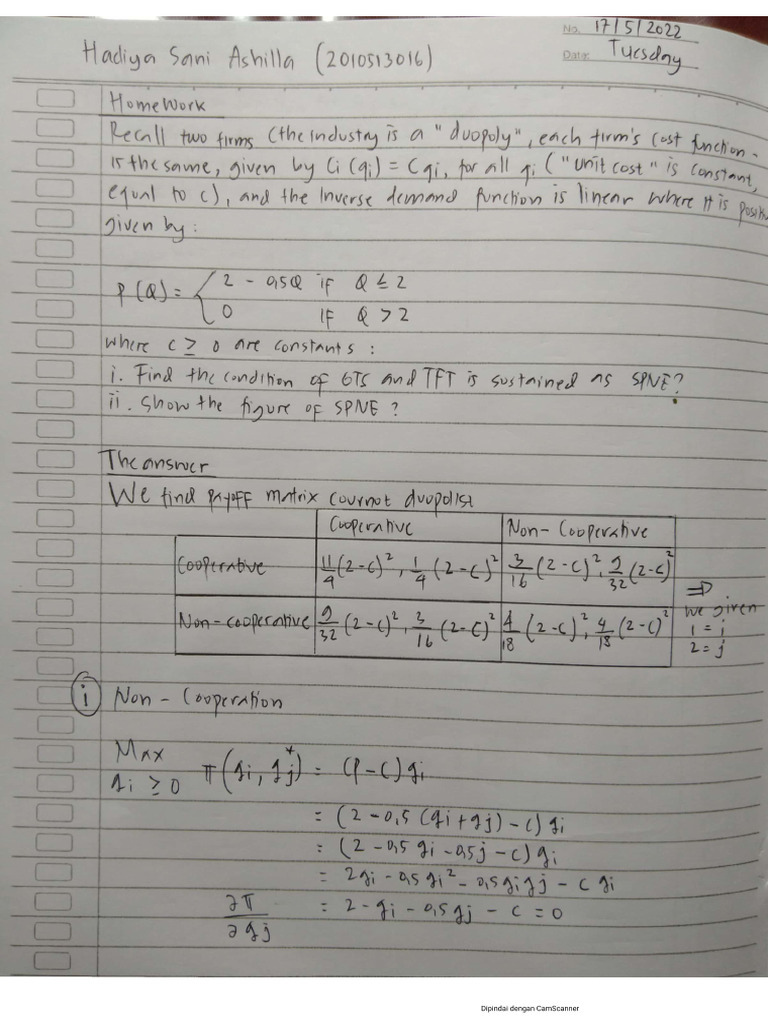 No. 17/5/2022
Date: Tuesday
Hadiya Sani Ashilla (2010513016)
HomeWork
Recall two firms (the industry is a "duopoly", each firm's cost function -
is the same, given by Ci (qi) = Cqi, for all qi ("unit cost" is constant,
equal to c), and the inverse demand function is linear where it is positiv
given by:
P(Q) = { 2 - 0,5Q if Q ≤ 2
0 if Q > 2
where c ≥ 0 are constants :
i. Find the condition of GTS and TFT is sustained as SPNE?
ii. Show the figure of SPNE ?
The answer
We find payoff matrix cournot duopolist
Cooperative Non-Cooperative
Cooperative 11/4 (2-c)², 1/4 (2-c)² 3/16 (2-c)², 9/32 (2-c)²
Non-cooperative 9/32 (2-c)², 3/16 (2-c)² 4/18 (2-c)², 4/18 (2-c)²
⇒
we given
1 = i
2 = j
i Non - Cooperation
Max qi ≥ 0 π(qi, qj*) = (P-C)qi
= (2-0,5 (qi+qj)-c) qi
= (2-0,5 qi -0,5j -c) qi
= 2qi - 0,5qi² - 0,5qiqj - c qi
∂π/∂qj = 2-qi - 0,5qj - c = 0
Dipindai dengan CamScanner